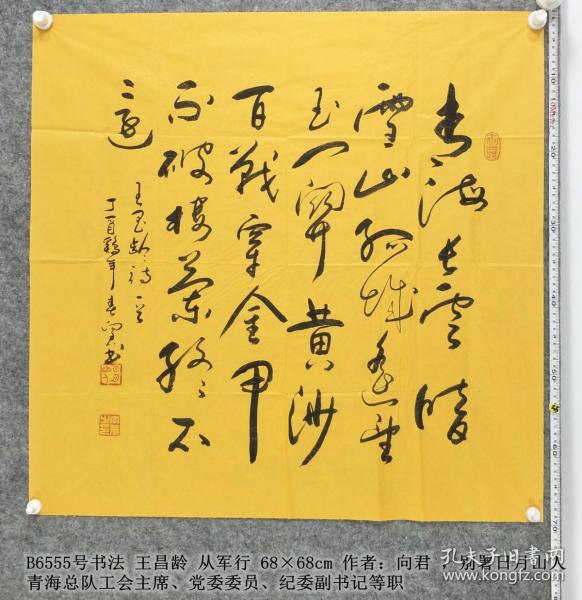 青海長雲暗
雪山孤城遥望
玉门関黄沙
百戰穿金甲
不破楼蘭终不
還
王昌龄诗
丁酉鷄年春
B6555号书法 王昌龄 从军行 68×68cm 作者：向君 ，别署日月山人
青海总队工会主席、党委委员、纪委副书记等职
孔夫子旧书网